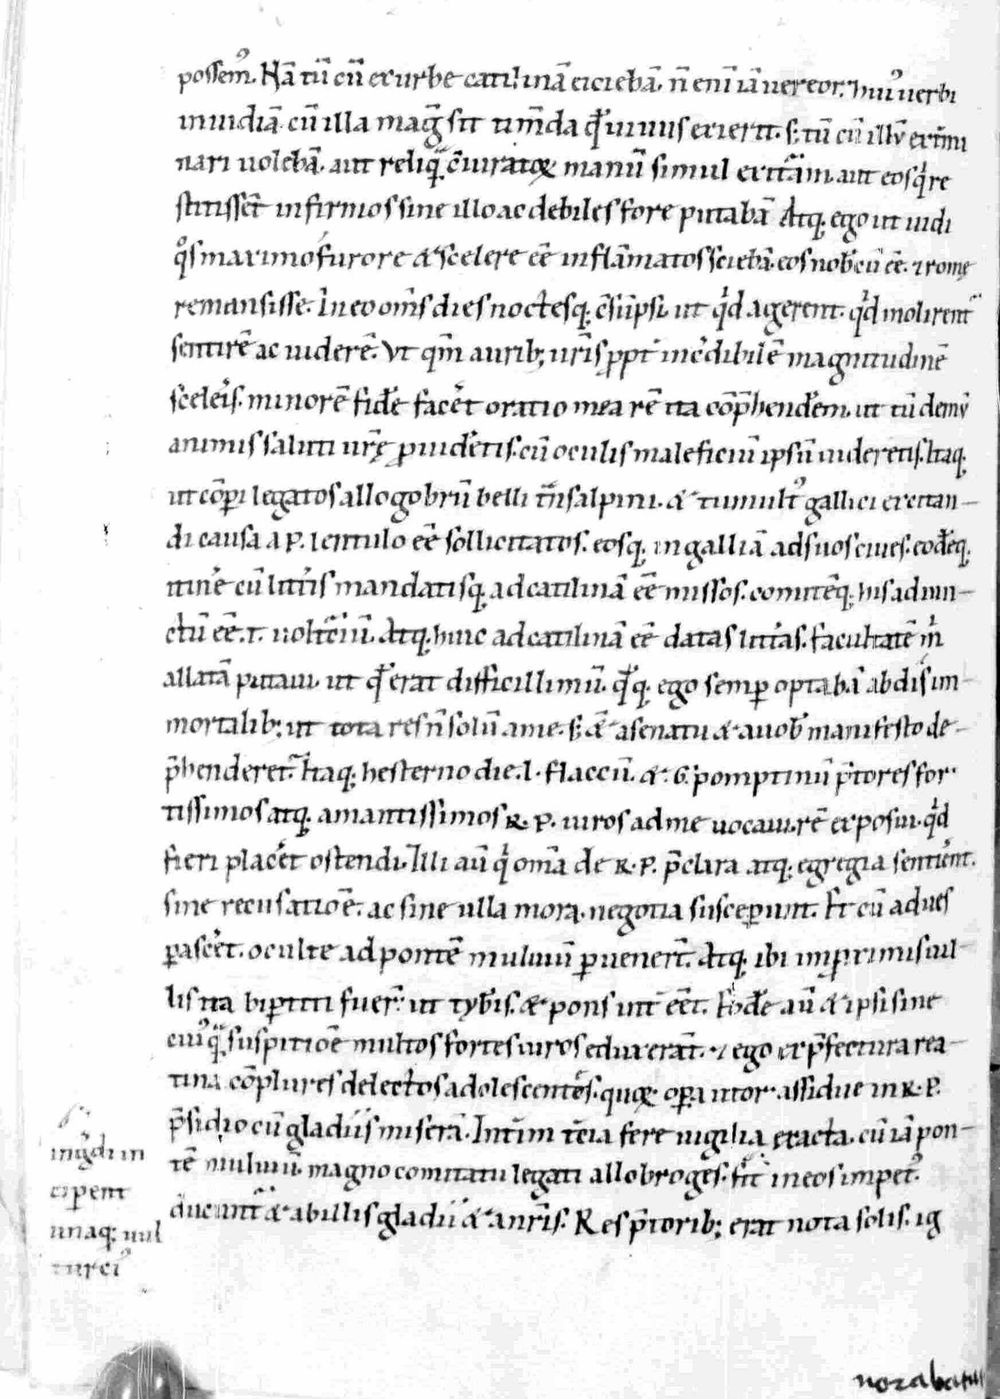 possem᷒. Nā tū cū ex urbe catilinā eiciebā. n̄ eni᷒ iā uereor. huiꝰ uerbi
inuidiā. cū illa mag̅ sit timda qđ uiuus exierit. s; tū cū illū ext̄mi
nari uolebā. aut reliq̄ c̄iuratoꝝ manū simul exiturā. aut eos q̇ re
stitissēt infirmos sine illo ac debiles fore putabā Atq; ego ut uidi
q̊s maximo furore & scelere ee̅ inflāmatos sciebā. eos nob̄ cū ee̅. ⁊ rome
remansisse. In eo om̄s dies noctesq; c̄sūpsi. ut qd̓ agerent. qd̓ molirent᷑
sentirē ac uiderē. Vt qm̄ aurib; uris ꝓpt᷑ incredibilē magnitudinē
sceleris. minorē fidē facēt oratio mea rē ita cōp̄henderem. ut tū demū
animis saluti urę ꝓuideretis. cū oculis maleficiū ipsū uideretis. Itaq;
ut cōpi legatos allogobrū belli t̄nsalpini. & tumultꝰ gallici excitan-
di causa a P. lentulo ee̅ sollicitatos. eosq; in galliā ad suos ciues. eodēq;
itinē cū litt̄is mandatisq; ad catilinā ee̅ missos. comitēq; his adiun-
ctū ee̅. t. uolt̄ciū. Atq; hinc ad catilinā ee̅ datas litt̄as. facultatē m̓
allatā putaui. ut qđ erat difficillimū. qđq; ego semꝑ optabā ab dis im-
mortalib; ut tota res n̄ solū a me. s; & a senatu & a uob̄ manifesto de-
p̄henderet᷑ Itaq; hesterno die. l. flaccū. & .G. pomptinū p̄tores for-
tissimos atq; amantissimos R. P. uiros ad me uocaui. rē exposui. qd̓
fieri placet ostendi. Illi aū q̓ om̄a de R. P. p̄clara atq; egregia sentirent.
sine recusatioē. ac sine ulla mora. negotia susceperunt. Et cū aduēs
ꝑascēt. oculte ad pontē muluiū ꝑuenert̄. Atq; ibi inproximis uil-
lis ita biꝑtiti fuer̄. ut tyb̄is. & pons int̄ eēt. Eodē aū & ipsi sine
cuiꝰq̄ suspitioē multos fortes uiros eduxerāt. ⁊ ego ex p̄fectura rea-
tina cōplures delectos adolescentes. quoꝝ oꝑa utor assidue in R. P.
p̄sidio cū gladiis miserā. Interim tēia fere uigilia exacta. cū iā pon-
tē muluiū. magno comitatu legati allobroges. fit᷑ in eos impetꝰ.
ducunt᷑ & ab illis gladii & a nr̄is. Res p̄torib; erat nota solis. ig
ing̓di in
ciperent
unaq; uul
turciꝰ
norabatur